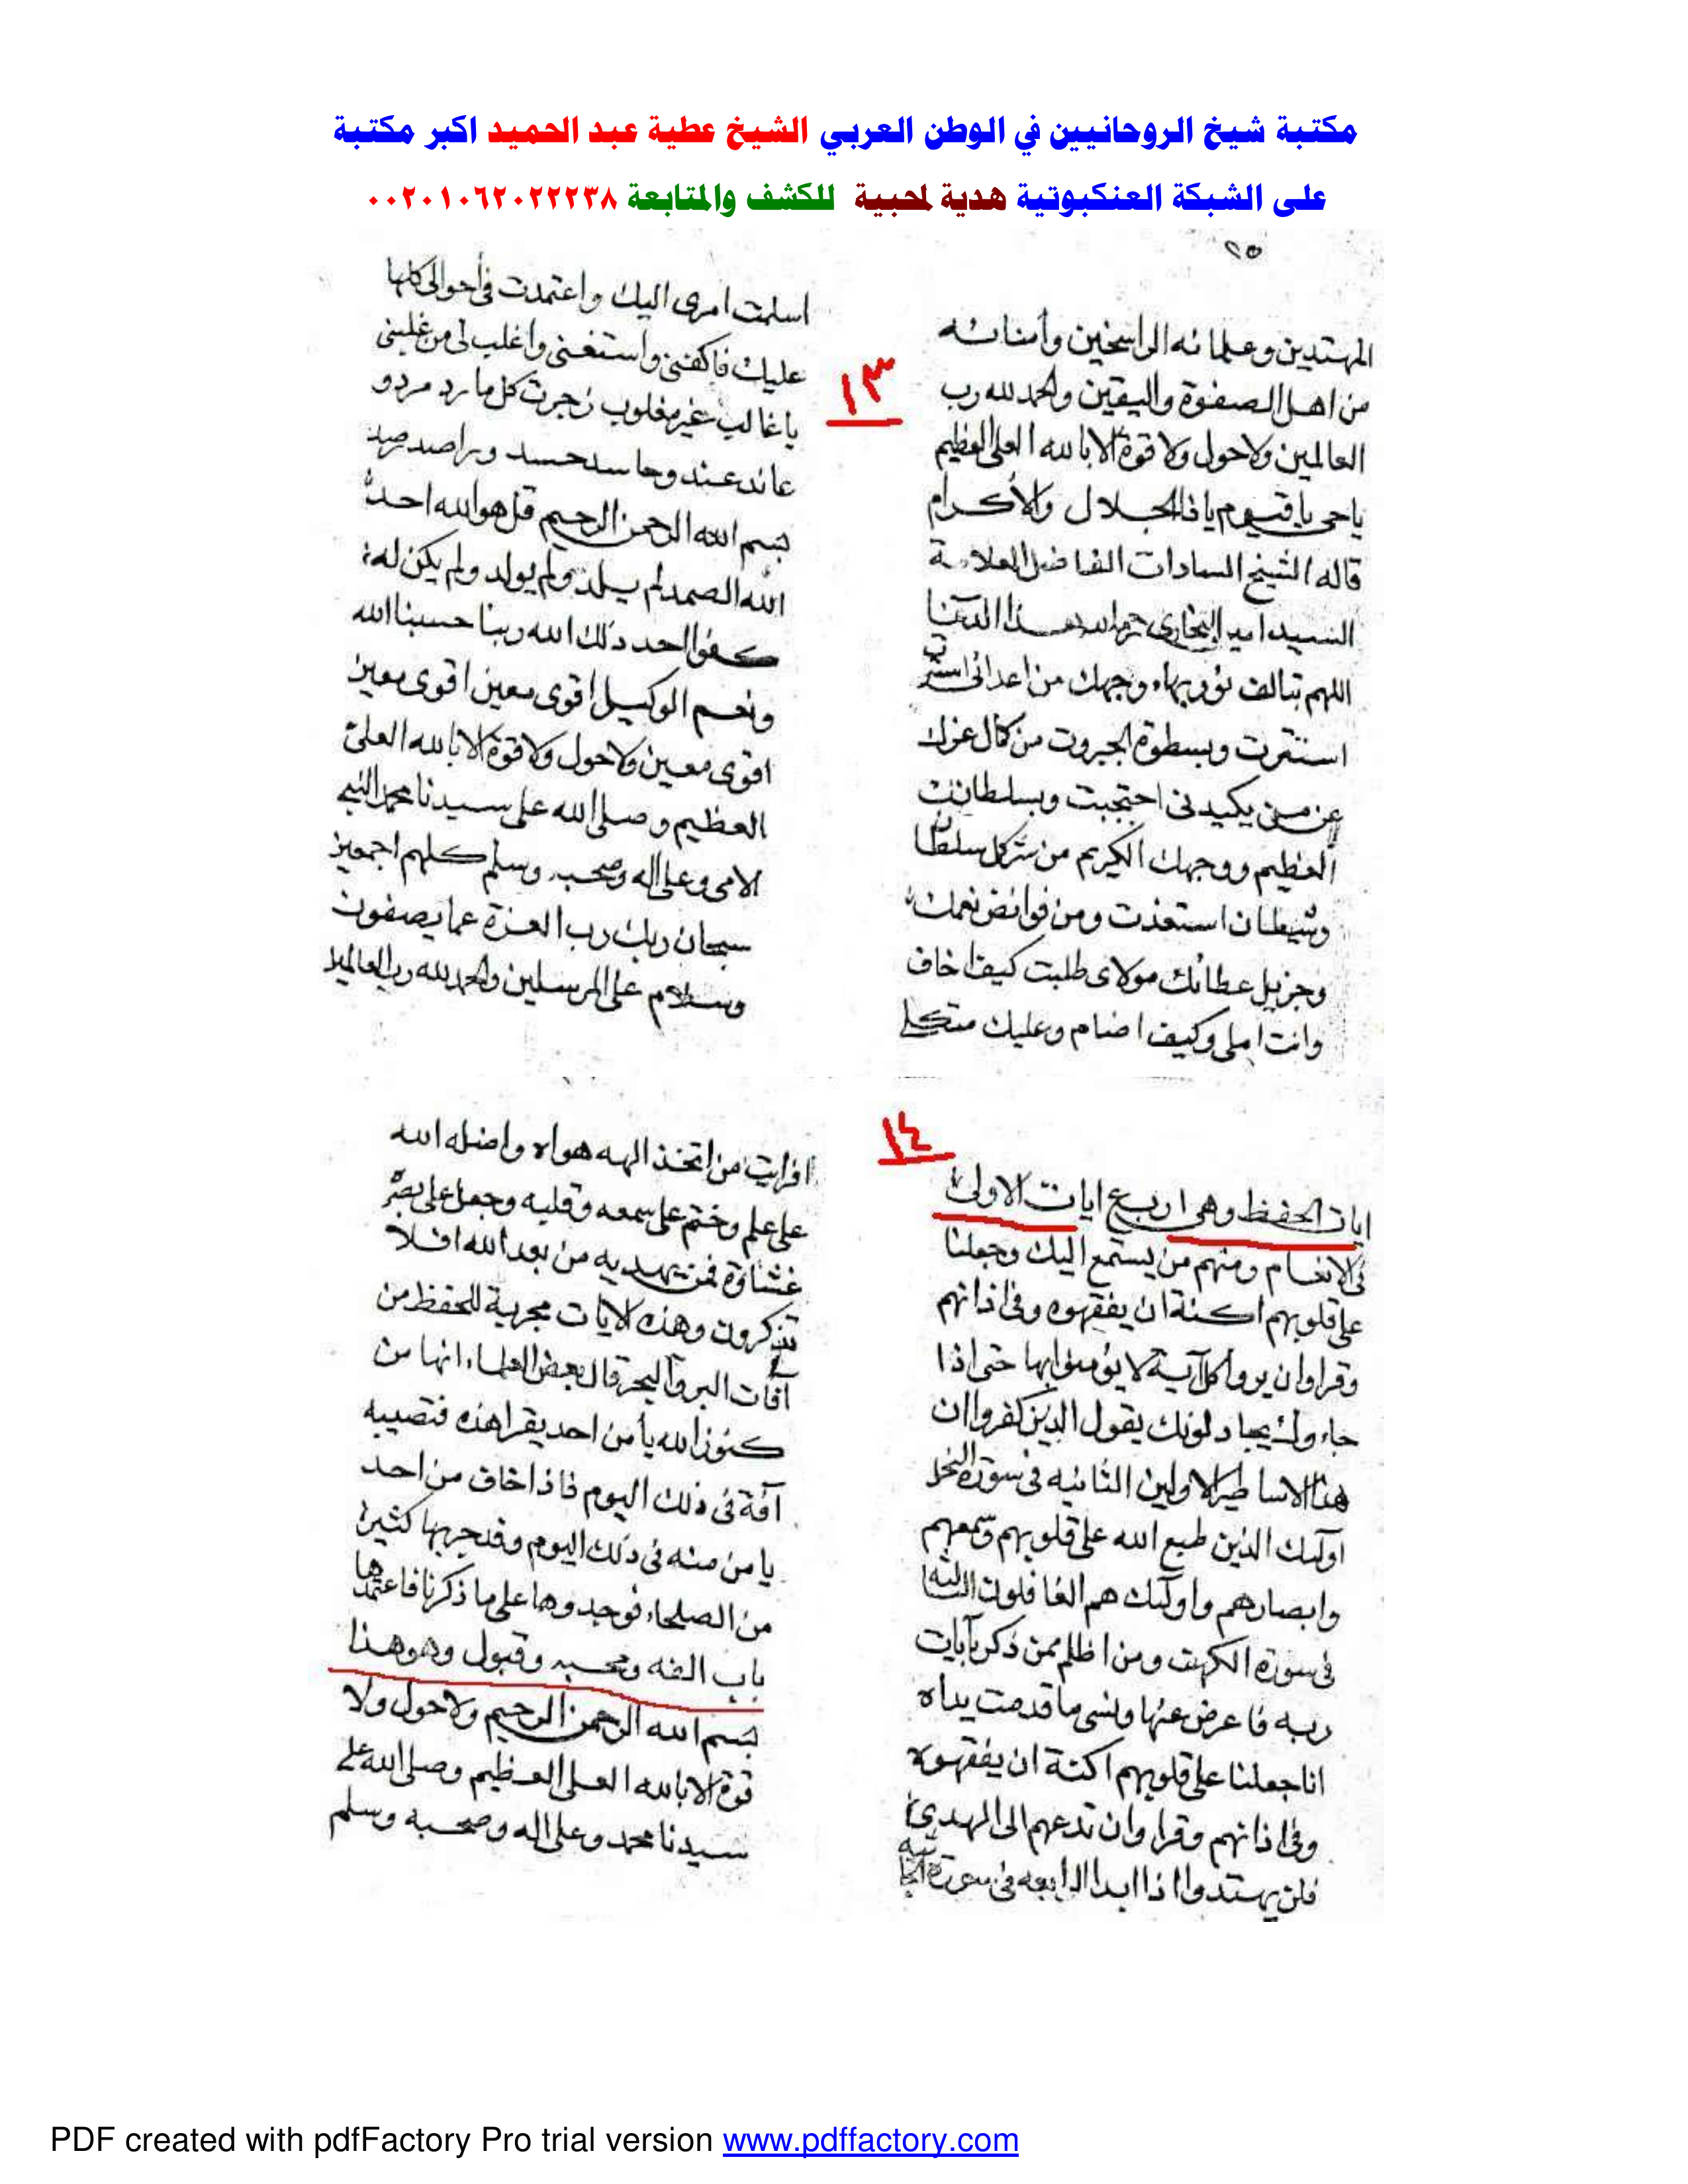 مكتبة شيخ الروحانيين في الوطن العربي الشيخ عطية عبد الحميد اكبر مكتبة
على الشبكة العنكبوتية هدية لمحبية للكشف والمتابعة ٠٠٢٠١٠٦٢٠٢٢٢٣٨
٢٥
المهتدين وعلمائه الراسخين وأمنائه
من اهل الصفوة واليقين والحمد لله رب
العالمين ولا حول ولا قوة الا بالله العلي العظيم
ياحي يا قيوم يا ذا الجلال والأكرام
قاله الشيخ السادات الفاضل العلامة
السيد امير البخاري هذا
اللهم بتالف نور بهاء وجهك من اعدائي
استترت وبسطوة الجبروت من كمال عزك
عن من يكيدني احتجبت وبسلطانك
العظيم ووجهك الكريم من شر كل سلطان
وشيطان استعذت ومن فوائض نعمك
وجزيل عطائك مولاى طلبت كيف اخاف
وانت املى وكيف اضام وعليك متكلى
١٣
اسلمت امرى اليك واعتمدت في أحوالي كلها
عليك فاكفنى واستغنى واغلب لي من غلبنى
يا غالب غير مغلوب زجرت كل مارد مردو
عاند عند وحاسد حسد وراصد رصد
بسم الله الرحمن الرحيم قل هو الله احد
الله الصمد لم يلد ولم يولد ولم يكن له
كفوا احد ذلك الله ربنا حسبنا الله
ونعم الوكيل اقوى معين اقوى معين
اقوى معين ولا حول ولا قوة الا بالله العلي
العظيم وصلى الله على سيدنا محمد النبي
الامى وعلى اله وصحبه وسلم كلهم اجمعين
سبحان ربك رب العزة عما يصفون
وسلام على المرسلين والحمد لله رب العالمين
١٤
ايات الحفظ وهى اربع ايات الاولى
في الانعام ومنهم من يستمع اليك وجعلنا
على قلوبهم اكنة ان يفقهوه وفي اذانهم
وقرا وان يروا كل آية لا يؤمنوا بها حتى اذا
جاءوك يجادلونك يقول الذين كفروا ان
هذا الا اساطير الاولين الثانيه في سورة النحل
اوليك الذين طبع الله على قلوبهم وسمعهم
وابصارهم واوليك هم الغافلون الثالثة
في سورة الكهف ومن اظلم ممن ذكر بآيات
ربه فاعرض عنها ونسي ما قدمت يداه
انا جعلنا على قلوبهم اكنة ان يفقهوه
وفي اذانهم وقرا وان تدعهم الى الهدى
فلن يهتدوا اذا ابدا الرابعه في سورة الجاثيه
افرايت من اتخذ الهه هواه واضله الله
على علم وختم على سمعه وقلبه وجعل على بصره
غشاوة فمن يهديه من بعد الله افلا
تذكرون وهذه الايات مجربة للحفظ من
آفات البر والبحر قال بعض العلماء انها من
كنوز الله يأ من احد يقرا هذه فتصيبه
آفة في ذلك اليوم فاذا خاف من احد
يامن منه في ذلك اليوم وقد جربها كثير
من الصلحاء فوجدوها على ما ذكرنا فاعتمدها
باب الفه ومحبه وقبول وهو هذا
بسم الله الرحمن الرحيم ولا حول ولا
قوة الا بالله العلى العظيم وصلى الله على
سيدنا محمد وعلى اله وصحبه وسلم
PDF created with pdfFactory Pro trial version www.pdffactory.com